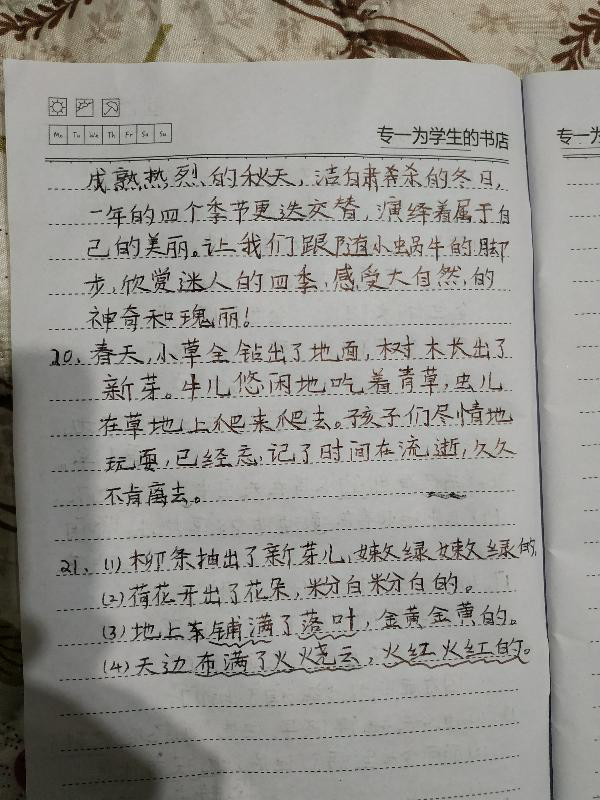 Mo Tu We Th Fr Sa Su
专一为学生的书店
专一为
成熟热烈的秋天，洁白肃杀的冬日，
一年的四个季节更迭交替，演绎着属于自
己的美丽。让我们跟随小蜗牛的脚
步，欣赏迷人的四季，感受大自然的
神奇和瑰丽！
20. 春天，小草全钻出了地面，树木长出了
新芽。牛儿悠闲地吃着青草，虫儿
在草地上爬来爬去。孩子们尽情地
玩耍，已经忘记了时间在流逝，久久
不肯离去。
21. (1)柳条抽出了新芽儿，嫩绿嫩绿的，
(2)荷花开出了花朵，粉白粉白的。
(3)地上铺满了落叶，金黄金黄的。
(4)天边布满了火烧云，火红火红的。